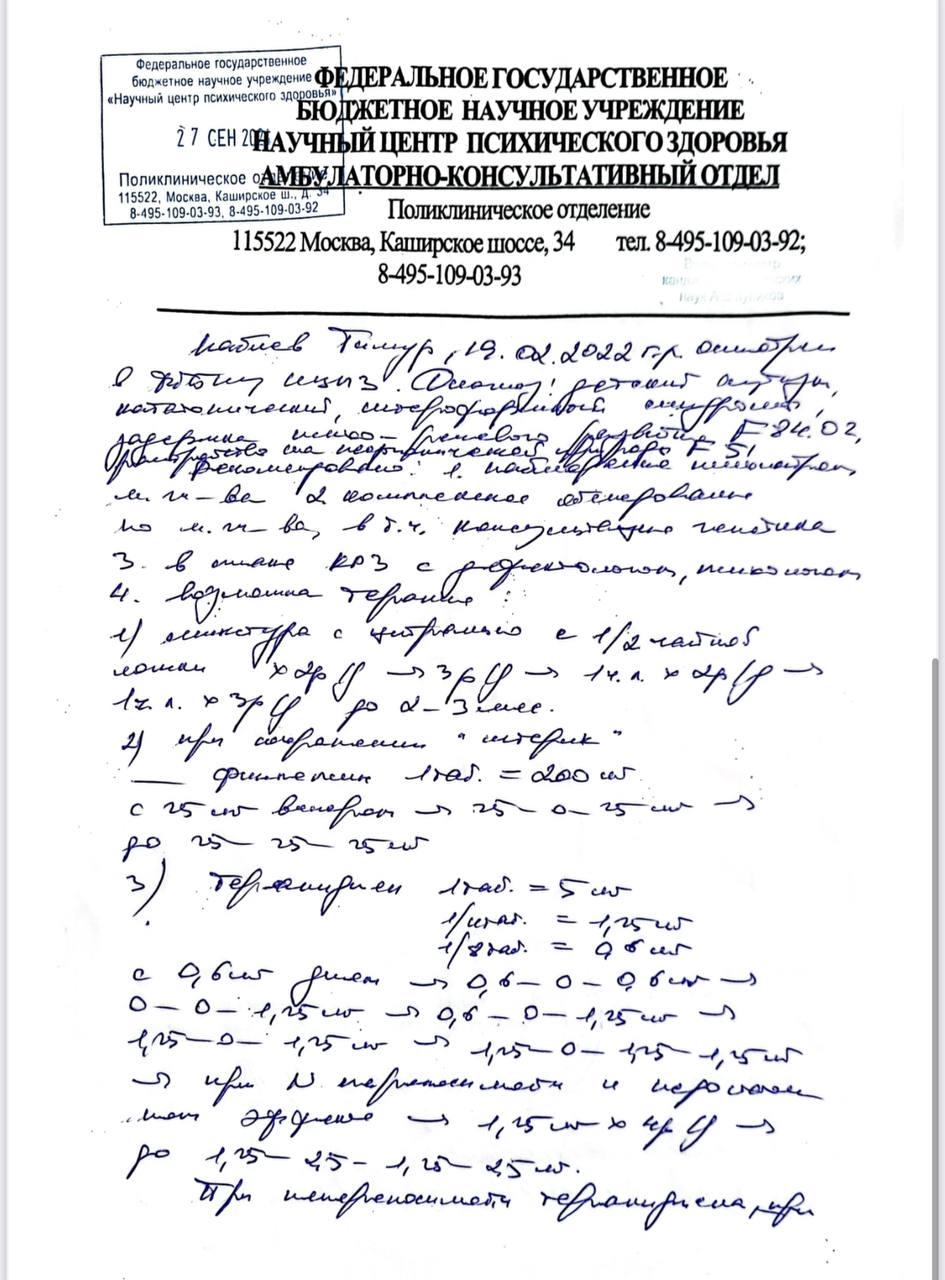 Федеральное государственное
бюджетное научное учреждение
«Научный центр психического здоровья»
27 СЕН 20
Поликлиническое
115522, Москва, Каширское ш., д. 34
8-495-109-03-93, 8-495-109-03-92
ФЕДЕРАЛЬНОЕ ГОСУДАРСТВЕННОЕ
БЮДЖЕТНОЕ НАУЧНОЕ УЧРЕЖДЕНИЕ
НАУЧНЫЙ ЦЕНТР ПСИХИЧЕСКОГО ЗДОРОВЬЯ
АМБУЛАТОРНО-КОНСУЛЬТАТИВНЫЙ ОТДЕЛ
Поликлиническое отделение
115522 Москва, Каширское шоссе, 34 тел. 8-495-109-03-92;
8-495-109-03-93
Тимур, 19.02.2022 г.р. осмотрен
в НЦПЗ. Диагноз: детский аутизм,
кататонический, синдромы,
задержка психо-речевого развития F 84.02,
расстройство сна неорганической природы F 51
Рекомендовано: 1. наблюдение психиатром
м. ж-ва 2 комплексное обследование
по м. ж-ва, в т.ч. консультация генетика
3. в плане КРЗ с дефектологом, психологом
4. возможна терапия:
1) микстура с цитралью с 1/2 чайной
ложки х 2р/д → 3р/д → 1ч.л. х 2р/д →
1ч.л. х 3р/д до 2-3 мес.
2) при сохранении "истерик"
— финлепсин 1таб. = 200 мг
с 25 мг вечером → 25 — 0 — 25 мг →
до 25 — 25 — 25 мг
3) тералиджен 1таб. = 5 мг
1/4таб. = 1,25 мг
1/8таб. = 0,6 мг
с 0,6 мг днем → 0,6 — 0 — 0,6 мг →
0 — 0 — 1,25 мг → 0,6 — 0 — 1,25 мг →
1,25 — 0 — 1,25 мг → 1,25 — 0 — 1,25 — 1,25 мг
→ при N переносимости и недостаточ
ном эффекте → 1,25 мг х 4р/д →
до 1,25 — 2,5 — 1,25 — 2,5 мг.
При непереносимости тералиджена, при